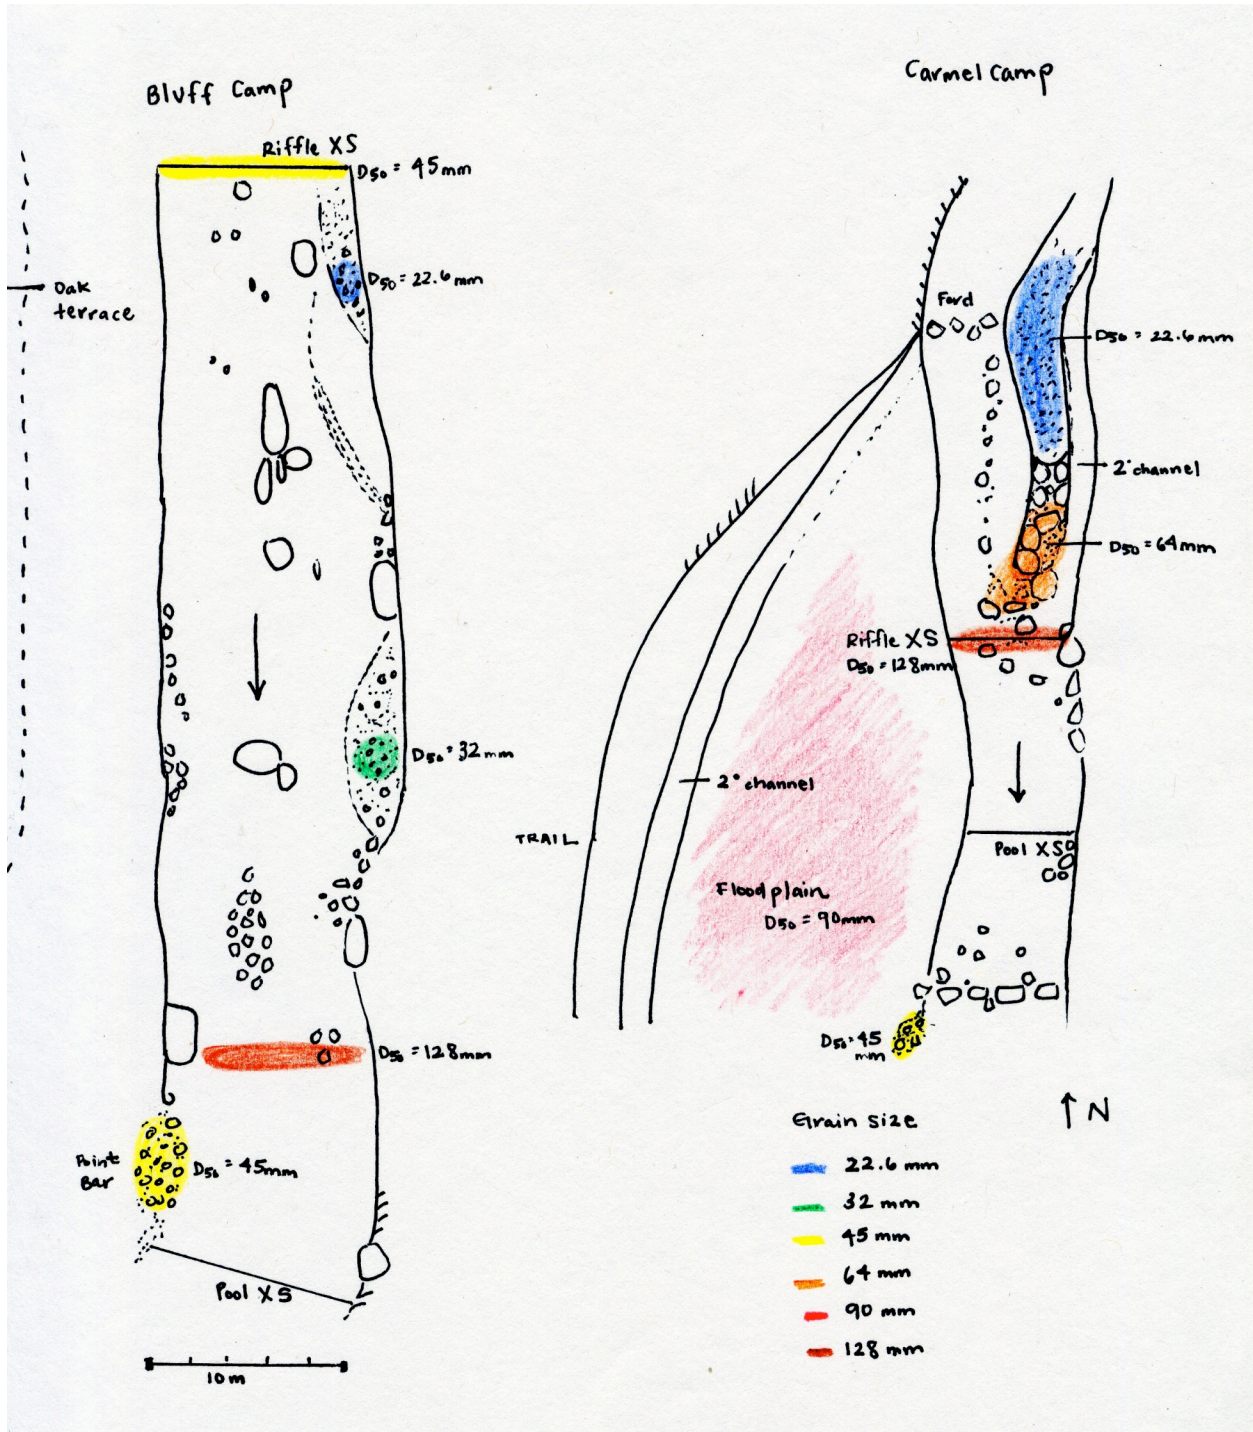 Bluff Camp
Riffle XS
D50 = 45mm
D50 = 22.6 mm
Oak
terrace
D50 = 32 mm
D50 = 128mm
Point
Bar
D50 = 45mm
Pool XS
10 m
Carmel Camp
Ford
D50 = 22.6 mm
2° channel
D50 = 64mm
Riffle XS
D50 = 128mm
2° channel
TRAIL
Pool XS
Floodplain
D50 = 90mm
D50 = 45
mm
N
Grain size
22.6 mm
32 mm
45 mm
64 mm
90 mm
128 mm